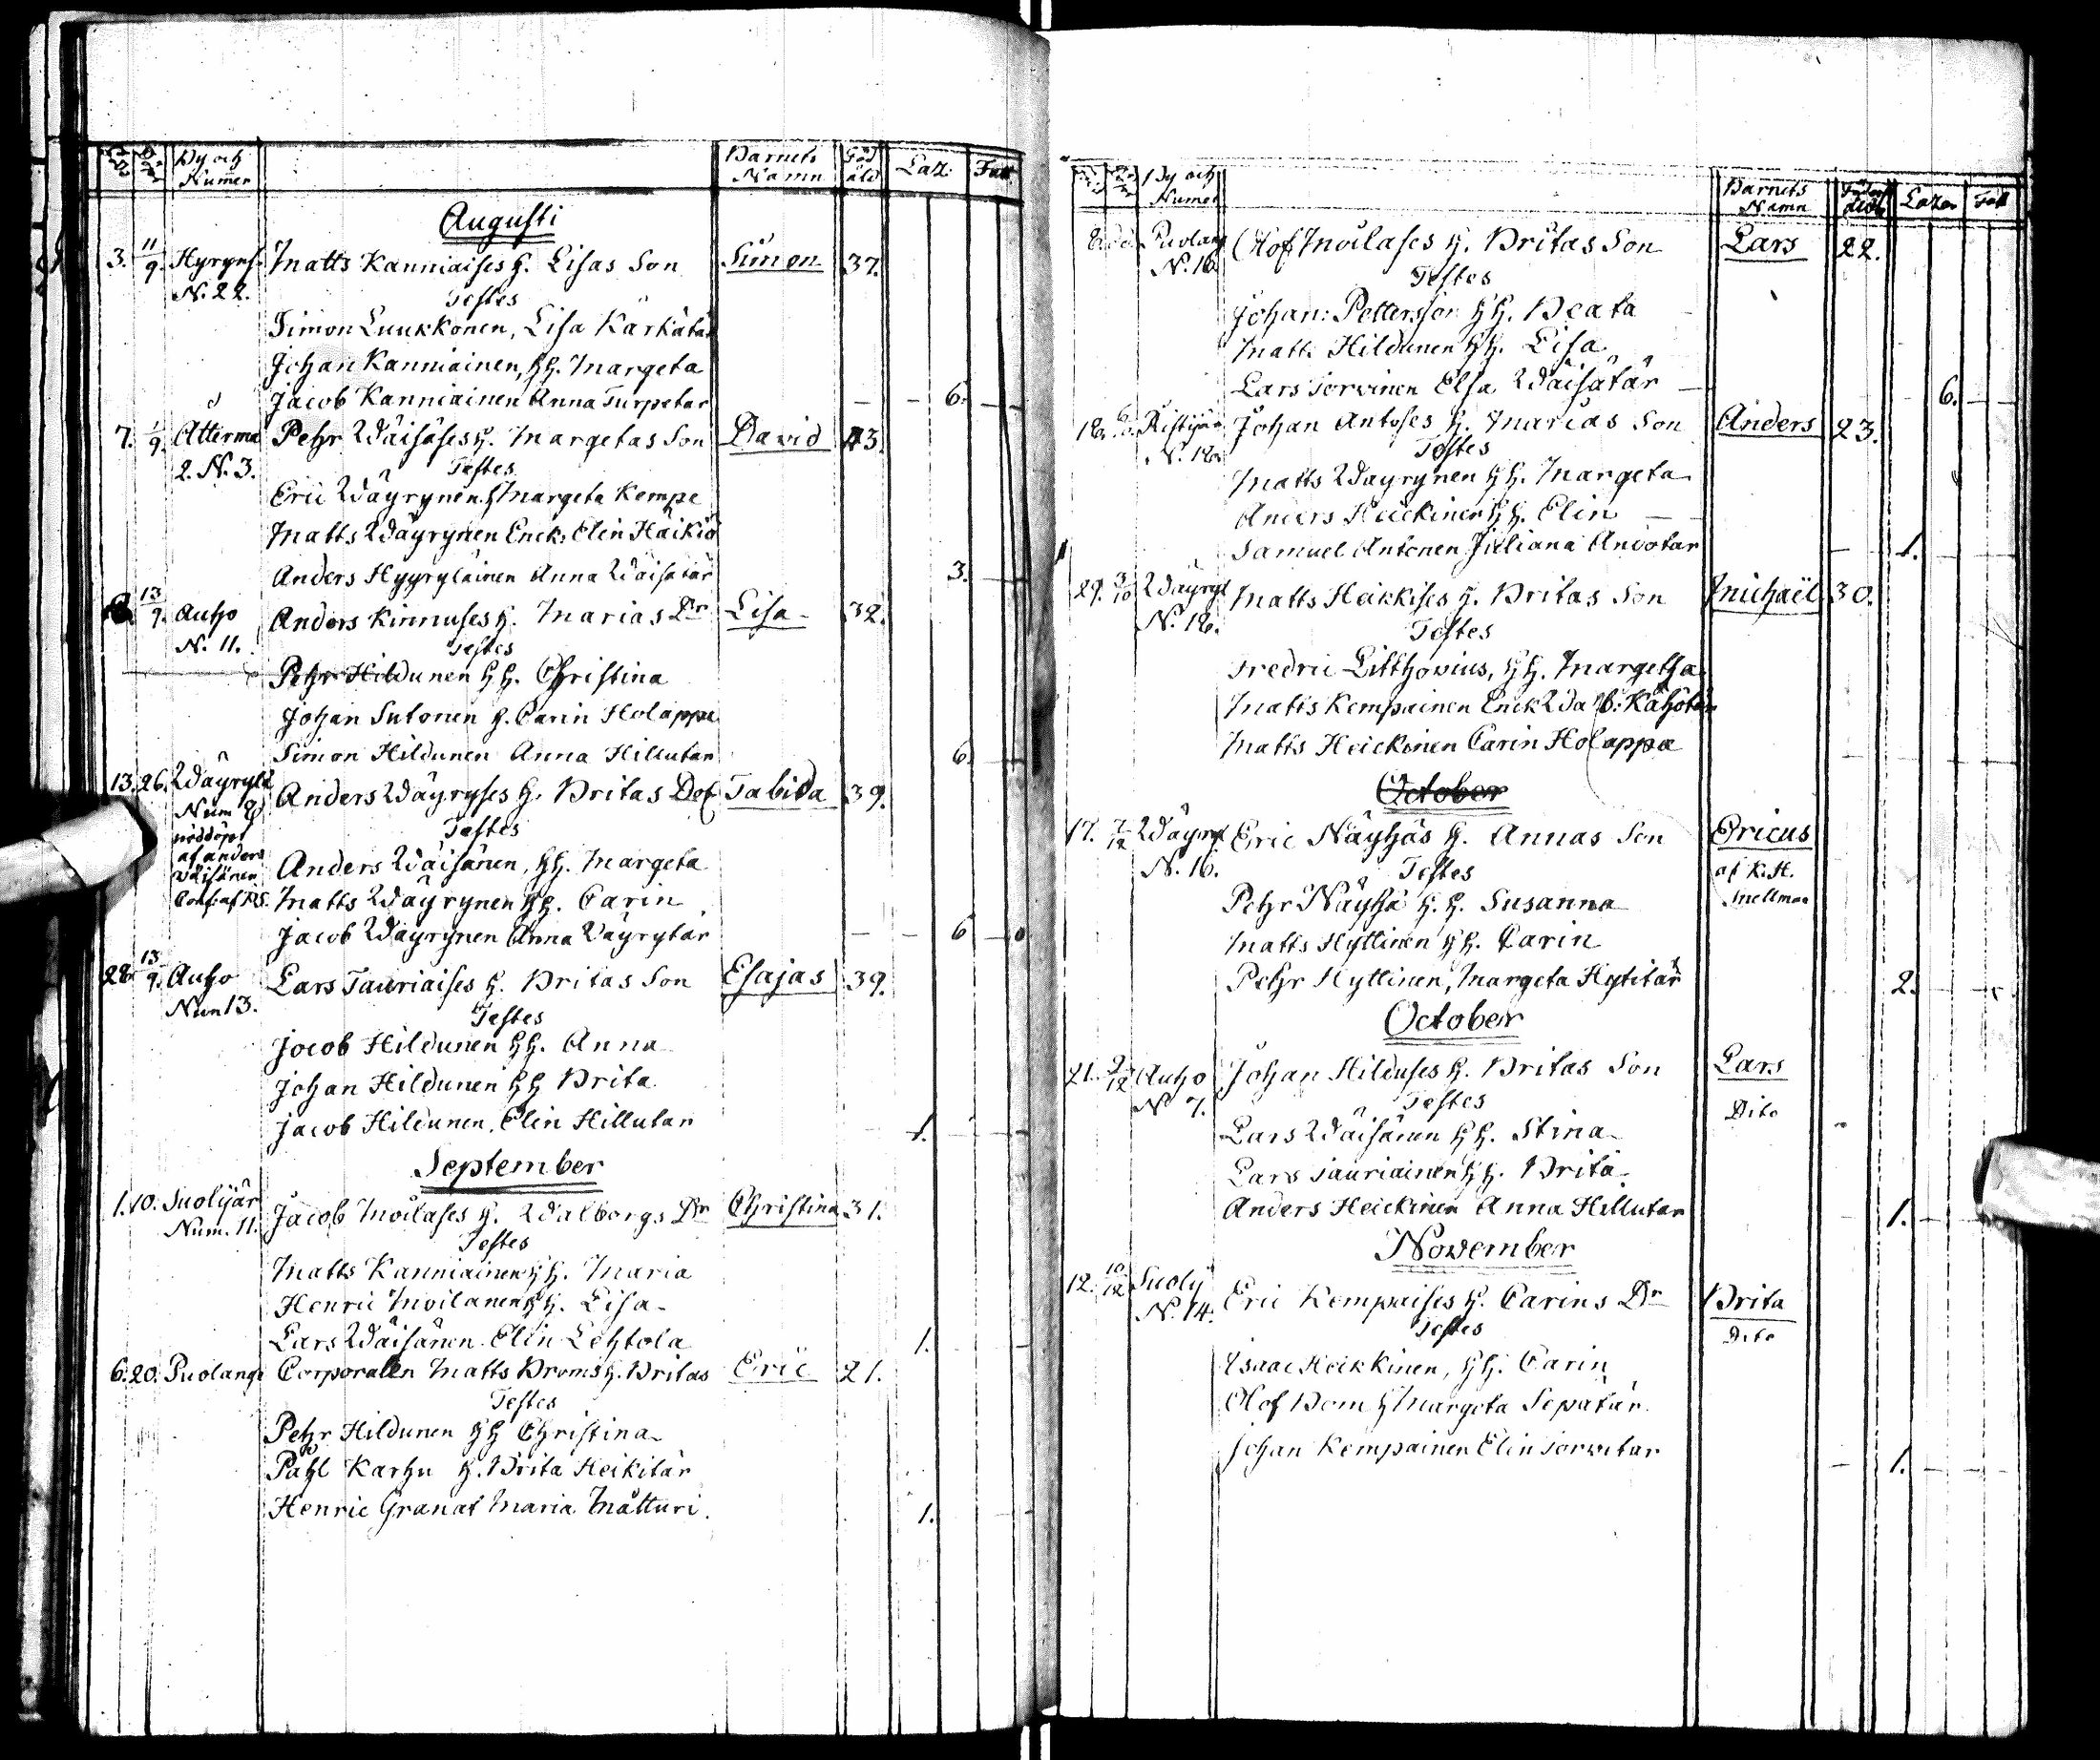 By och Barnets Föd Låt. Fatt.
Numer Namn åld
Augusti
3. 11/9. Hyryns. Matts Kanniaises h. Lisas Son Simon 37.
N. 22. Testes
Simon Luukkonen, Lisa Karkatar
Johan Kanniainen, h h. Margeta
Jacob Kanniainen Anna Turpetar 6.
7. 1/9. Atterma Pehr Wäisäses h. Margetas Son David 43.
2. N. 3. Testes
Eric Wäyrynen h Margeta Kempe
Matts Wäyrynen Enck: Elin Häikiö
Anders Hyyryläinen Anna Wäisatar 3.
13/9. Auho Anders Kinnuses h. Marias Dr Lisa 32.
N. 11. Testes
Pehr Hildunen h h. Christina
Johan Sutonen h. Carin Holappa
Simon Hildunen Anna Hillutar 6.
13. 26. Wäyrylä Anders Wäyryses h. Britas Dot Tabita 39.
Num 8 Testes
nöddöpt
af anders Anders Wäisänen, h h. Margeta
Wäisänen
Conf: af P.S. Matts Wäyrynen h h. Carin
Jacob Wäyrynen Anna Wäyrytär 6
28 13/9. Auho Lars Tauriaises h. Britas Son Esajas 39.
Num 13. Testes
Jacob Hildunen h h. Anna
Johan Hildunen h h Brita
Jacob Hildunen, Elin Hillutar 1.
September
1. 10. Suolijär Jacob Moilases h. Walborgs Dr Christina 31.
Num. 11. Testes
Matts Kanniainen h h. Maria
Henric Moilanen h h. Lisa
Lars Wäisänen Elin Lehtola 1.
6. 20. Puolange Corporalen Matts Broms h. Britas Eric 21.
Testes
Pehr Hildunen h h Christina
Påhl Karhu h. Brita Heikitär
Henric Granat Maria Mätturi. 1.
By och Barnets Låt Fatt
Numer Namn
Puolang Olof Moilases h. Britas Son Lars 22.
N. 16. Testes
Johan: Pettersson h h. Beata
Matts Hildunen h h. Lisa
Lars Torvinen Elsa Wäisätär 6.
18. Ristijär Johan Antoses h. Marias Son Anders 23.
N. 18. Testes
Matts Wäyrynen h h. Margeta
Anders Heickinen h h. Elin
Samuel Antonen Juliana Andotar 1.
29. 3/10 Wäyryl Matts Heikkises h. Britas Son Michaël 30.
N. 18. Testes
Fredric Litthovius, h h. Margetha
Matts Kempainen Enck Walb: Kähötär
Matts Heickinen Carin Holappa
October
17. 7/12 Wäyryl Eric Näyhäs h. Annas Son Ericus
N. 16. Testes af K. H.
Pehr Näyhä h. h. Susanna Snellman
Matts Hyttinen h h. Carin
Pehr Hyttinen, Margeta Hytitär 2.
October
21. 9/12 Auho Johan Hilduses h. Britas Son Lars
N 7. Testes Dito
Lars Wäisänen h h. Stina
Lars Tauriainen h h. Brita
Anders Heickinen Anna Hillutar 1.
November
12. 10/12 Suolij Eric Kempaises h. Carins Dr Brita
N. 14. Testes Dito
Isaac Heikkinen, h h. Carin
Olof Bom h Margeta Sepatär
Johan Kempainen Elin Torvitar 1.